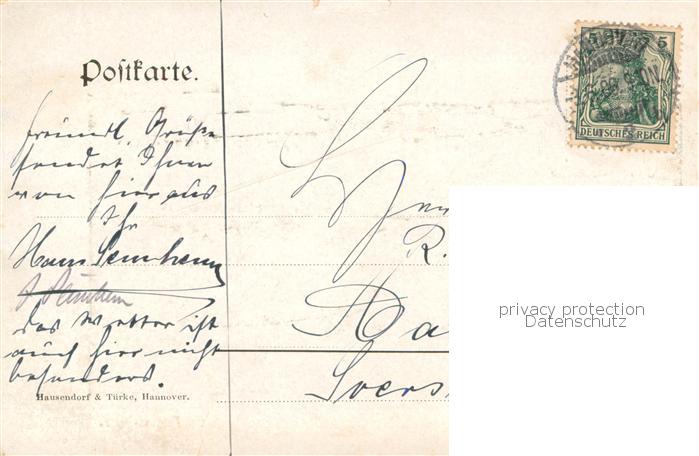 Postkarte.
5 5
DEUTSCHES REICH
freundl. Grüße
sendet Ihnen
von hier aus
Ihr
Hans
das Wetter ist
auch hier nicht
besonders.
Hausendorf & Türke, Hannover.
Herr
R.
Ha
privacy protection
Datenschutz